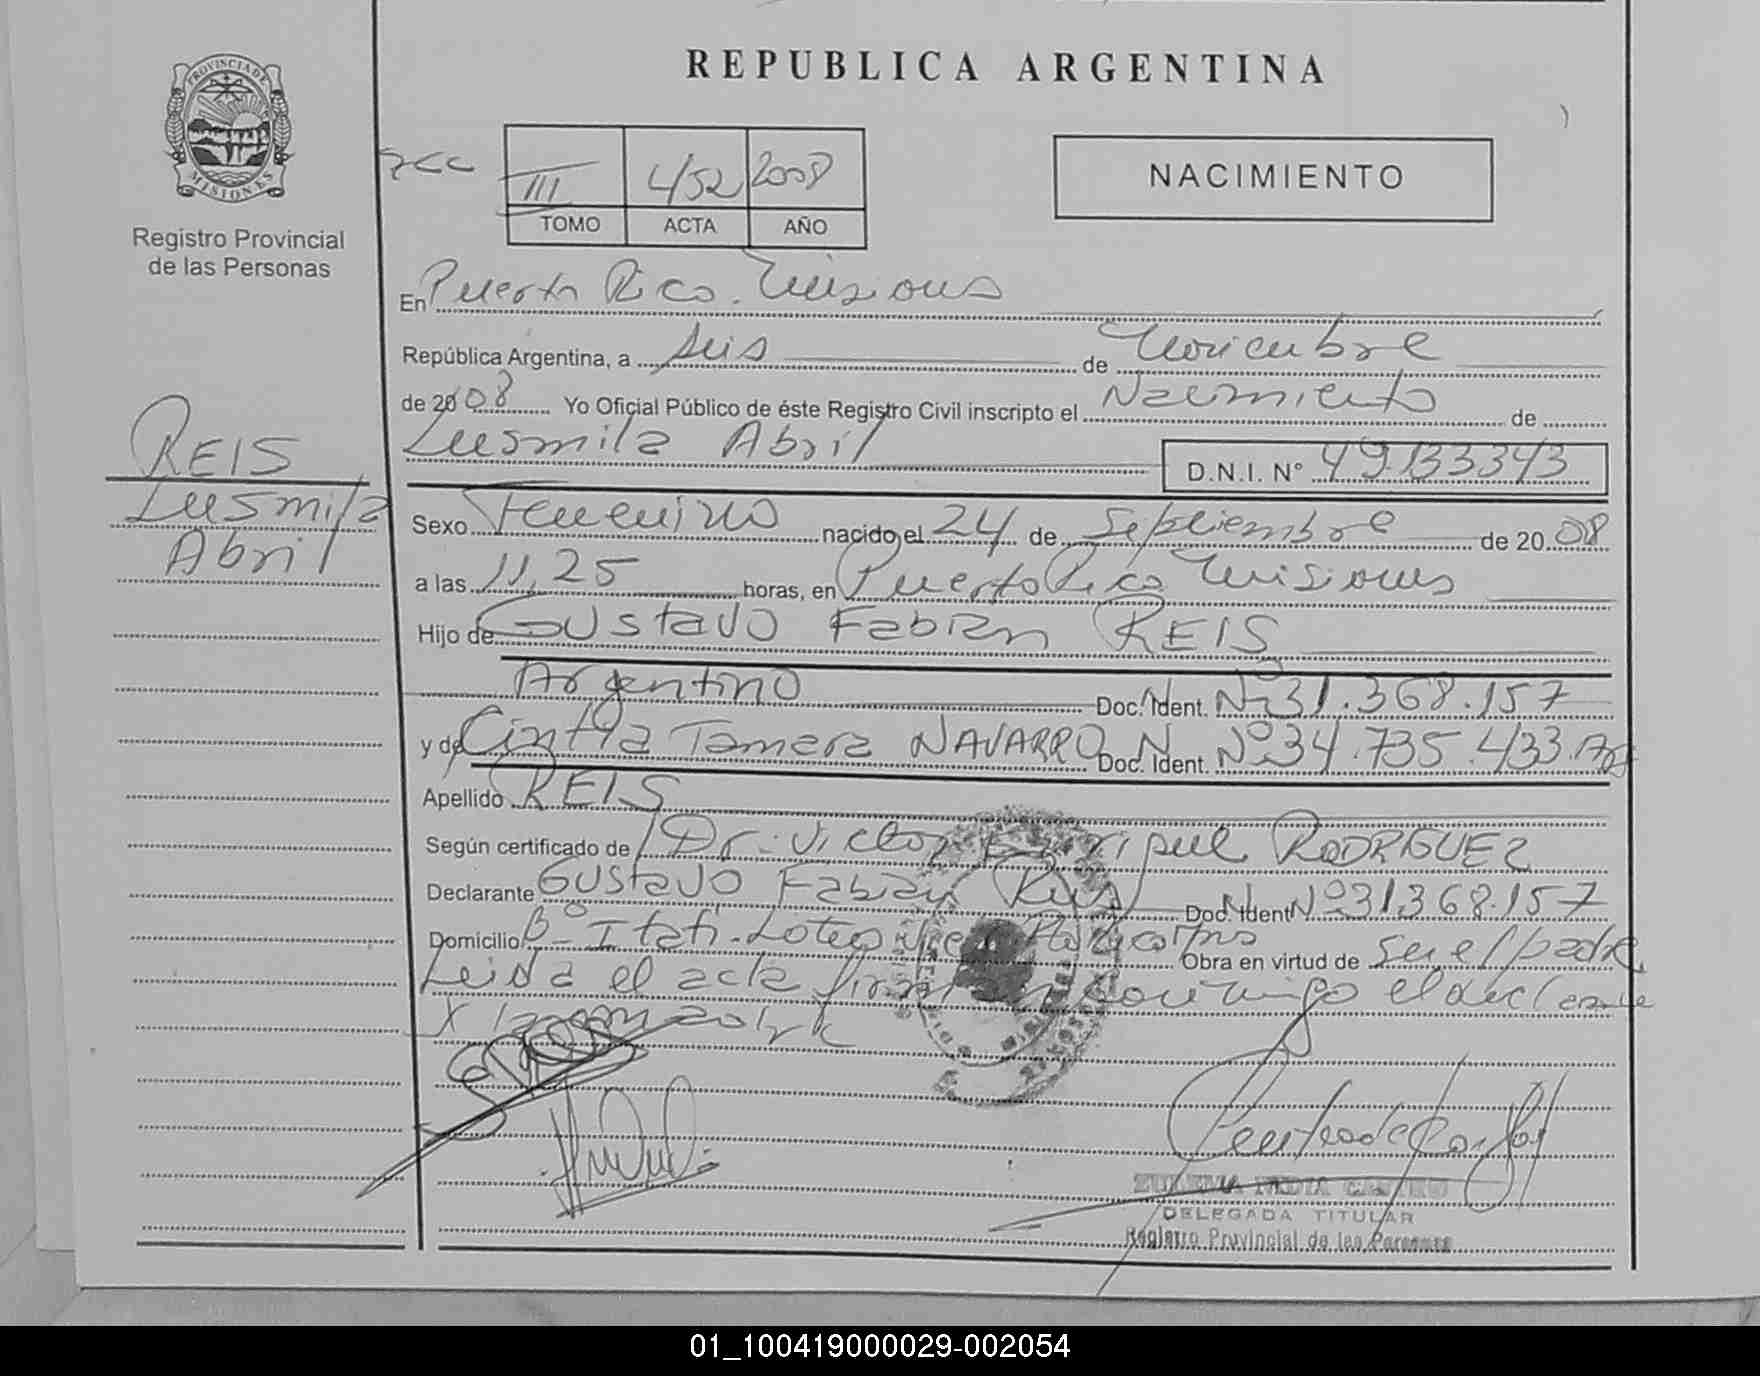 PROVINCIA DE
MISIONES
Registro Provincial
de las Personas
REPUBLICA ARGENTINA
NACIMIENTO
III 452 2008
TOMO ACTA AÑO
En Puerto Rico. Misiones
República Argentina, a seis de Noviembre
de 2008 Yo Oficial Público de éste Registro Civil inscripto el Nacimiento de
Lusmila Abril D.N.I. N° 49.133343
REIS
Lusmila
Abril
Sexo Femenino nacido el 24 de Septiembre de 2008
a las 11,25 horas, en Puerto Rico Misiones
Hijo de Gustavo Fabian REIS
Argentino Doc. Ident. Nº31.368.157
y de Cintia Tamara NAVARRO Doc. Ident. Nº34.735.433
Apellido REIS
Según certificado de Dr. Victor RODRIGUEZ
Declarante Gustavo Fabian Reis Doc. Ident Nº31.368.157
Domicilio Bº Itati. Obra en virtud de ser el padre
Leida el acta conmigo el declarante
DELEGADA TITULAR
Registro Provincial de las Personas
01_100419000029-002054